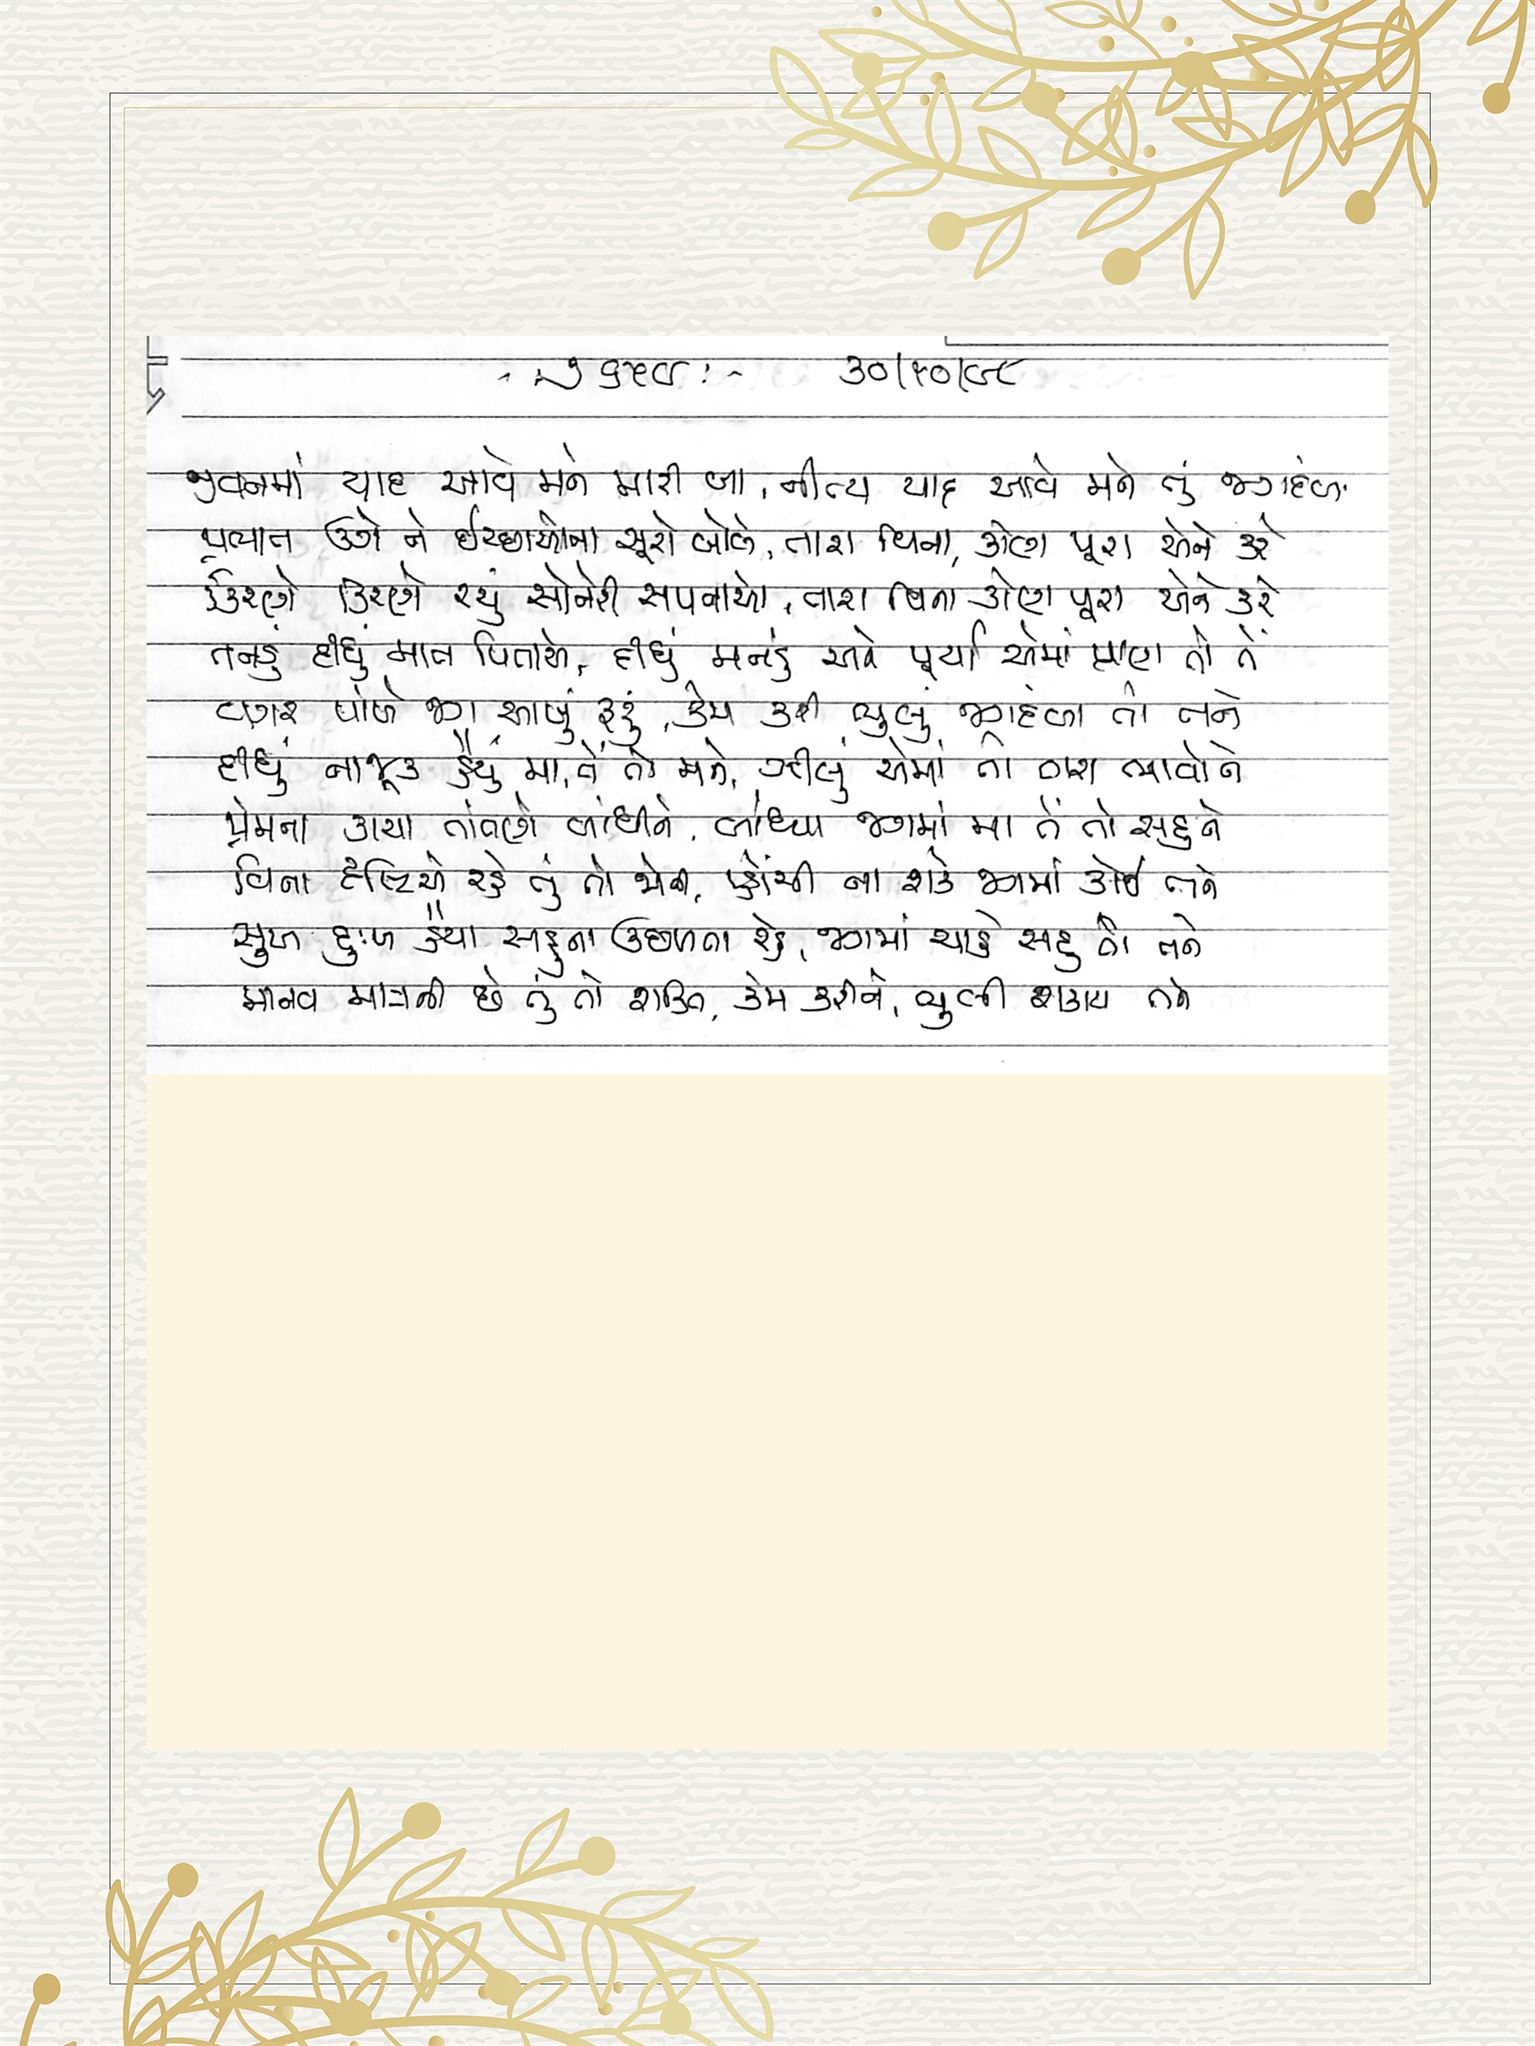 ૩૦/૧૦/૯૯
જીવનમાં યાદ આવે મને મારી બા, નીત્ય યાદ આવે મને તું જગદંબા
પ્રભાત ઉગે ને ઈચ્છાઓના સૂરો બોલે, તારા વિના, કોણ પૂરા એને કરે
કિરણો કિરણો રચું સોનેરી સપનાઓ, તારા વિના કોણ પૂરા એને કરે
તનડું દીધું માત પિતાએ, દીધું મનડું અને પૂર્યા એમાં પ્રાણ તો તેં
વગર પાંખે જગ આખું ફરું, કેમ કરી ભુલું જગદંબા તો તને
દીધું નાજૂક હૈયું મા, તેં તો મને, ઝીલું એમાં તો તારા ભાવોને
પ્રેમના કાચા તાંતણે બાંધીને, બાંધ્યા જગમાં મા તેં તો સહુને
વિના હથિયારે રહે તું તો, પહોંચી ના શકે જગમાં કોઈ તને
સુખ દુઃખ હૈયા સહુના ઉછળતા રહે, જગમાં ચાહે સહુ તો તને
માનવ માત્રની છે તું તો શક્તિ, કેમ કરીને, ભુલી શકાય તને